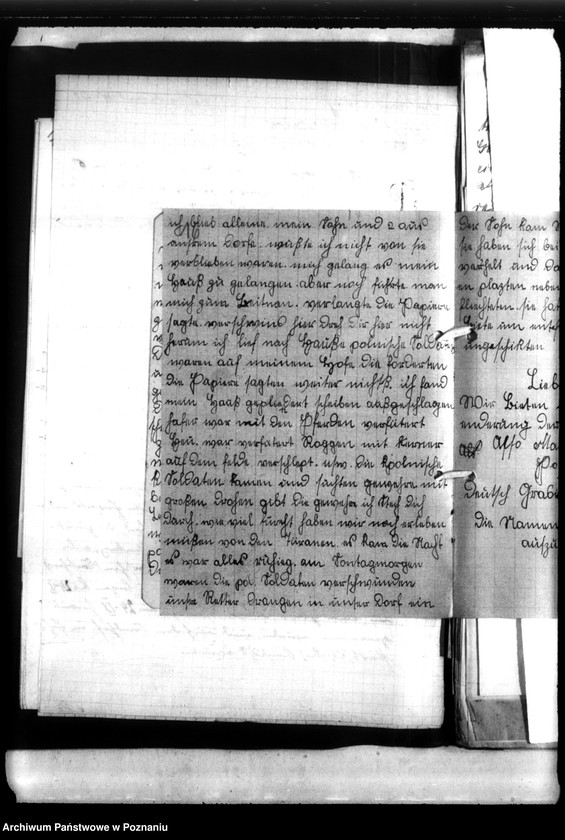 ich blieb alleine mein Sohn und 2 aus
unsrem Dorfe. wußte ich nicht von sie
verblieben waren. mich gelang es mein
Hauß zu gelangen aber noch führte man
mich zum Leitnan. verlangte die Papiere
sagte verschwind hier Dreh Dir hier nicht
herum ich lief nach Hauße polnische Soldaten
waren auf meinem Hofe die forderten
die Papiere sagten weiter nichts. ich fand
mein Hauß geplündert scheiben außgeschlagen
hafer war mit den Pferden verfütert
Heu. war verfütert Roggen mit kerner
auf dem felde verschlept. usw. die polnische
Soldaten kamen und suchten gewehre mit
großen Drohen gibt die gewehre ich stech dich
durch. wie viel furcht haben wir noch erleben
müßen von den Tiranen. es kam die Nacht
es war alles ruhieg. am Sontagmorgen
waren die pol. Soldaten verschwunden
unsre Retter drangen in unser Dorf ein
Der Sohn kam
sie haben sich bei
verhelt und
en plazten neben
flüchteten. sie hat
angeschikten
Lieb
Wir bieten
enderung der
Also
Deutsch Grab
die Namen
auszu
Archiwum Państwowe w Poznaniu